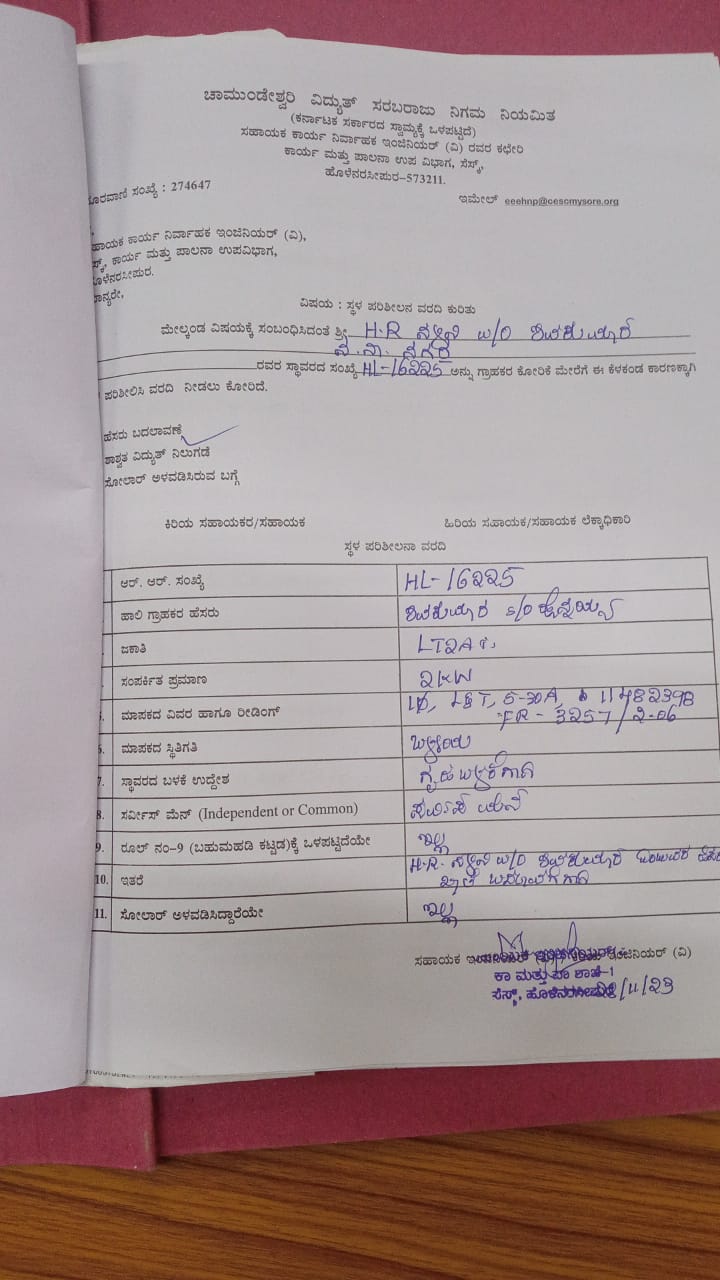 ಚಾಮುಂಡೇಶ್ವರಿ ವಿದ್ಯುತ್ ಸರಬರಾಜು ನಿಗಮ ನಿಯಮಿತ
(ಕರ್ನಾಟಕ ಸರ್ಕಾರದ ಸ್ವಾಮ್ಯಕ್ಕೆ ಒಳಪಟ್ಟಿದೆ)
ಸಹಾಯಕ ಕಾರ್ಯ ನಿರ್ವಾಹಕ ಇಂಜಿನಿಯರ್ (ವಿ) ರವರ ಕಛೇರಿ
ಕಾರ್ಯ ಮತ್ತು ಪಾಲನಾ ಉಪ ವಿಭಾಗ, ಸೆಸ್ಕ್,
ಹೊಳೆನರಸೀಪುರ-573211.
ಸಂಖ್ಯೆ : 274647
ಇಮೇಲ್ eeehnp@cescmysore.org
ಕಾರ್ಯ ನಿರ್ವಾಹಕ ಇಂಜಿನಿಯರ್ (ವಿ),
ಕಾರ್ಯ ಮತ್ತು ಪಾಲನಾ ಉಪವಿಭಾಗ,
ವಿಷಯ : ಸ್ಥಳ ಪರಿಶೀಲನ ವರದಿ ಕುರಿತು
ಮೇಲ್ಕಂಡ ವಿಷಯಕ್ಕೆ ಸಂಬಂಧಿಸಿದಂತೆ ಶ್ರೀ H.R ನಳಿನಿ w/o ಶಿವಕುಮಾರ
ನಗರ
ರವರ ಸ್ಥಾವರದ ಸಂಖ್ಯೆ HL-16225 ಅನ್ನು ಗ್ರಾಹಕರ ಕೋರಿಕೆ ಮೇರೆಗೆ ಈ ಕೆಳಕಂಡ ಕಾರಣಕ್ಕಾಗಿ
ಪರಿಶೀಲಿಸಿ ವರದಿ ನೀಡಲು ಕೋರಿದೆ.
ಹೆಸರು ಬದಲಾವಣೆ
ಶಾಶ್ವತ ವಿದ್ಯುತ್ ನಿಲುಗಡೆ
ಸೋಲಾರ್ ಅಳವಡಿಸಿರುವ ಬಗ್ಗೆ
ಕಿರಿಯ ಸಹಾಯಕರ/ಸಹಾಯಕ
ಹಿರಿಯ ಸಹಾಯಕ/ಸಹಾಯಕ ಲೆಕ್ಕಾಧಿಕಾರಿ
ಸ್ಥಳ ಪರಿಶೀಲನಾ ವರದಿ
ಆರ್. ಆರ್. ಸಂಖ್ಯೆ HL-16225
ಹಾಲಿ ಗ್ರಾಹಕರ ಹೆಸರು ಶಿವಕುಮಾರ s/o
ಜಕಾತಿ LT2A
ಸಂಪರ್ಕಿತ ಪ್ರಮಾಣ 2KW
ಮಾಪಕದ ವಿವರ ಹಾಗೂ ರೀಡಿಂಗ್ 1Φ, L&T, 5-30A, 11482398
FR - 3257/2-06
6. ಮಾಪಕದ ಸ್ಥಿತಿಗತಿ ಒಳ್ಳೆಯ
7. ಸ್ಥಾವರದ ಬಳಕೆ ಉದ್ದೇಶ ಗೃಹ ಬಳಕೆಗಾಗಿ
8. ಸರ್ವೀಸ್ ಮೆನ್ (Independent or Common)
9. ರೂಲ್ ನಂ-9 (ಬಹುಮಹಡಿ ಕಟ್ಟಡ)ಕ್ಕೆ ಒಳಪಟ್ಟಿದೆಯೇ ಇಲ್ಲ
10. ಇತರೆ H.R. ನಳಿನಿ w/o ಶಿವಕುಮಾರ
11. ಸೋಲಾರ್ ಅಳವಡಿಸಿದ್ದಾರೆಯೇ ಇಲ್ಲ
ಸಹಾಯಕ ಇಂಜಿನಿಯರ್ (ವಿ)
ಕಾ ಮತ್ತು ಪಾ ಶಾಖೆ-1
ಸೆಸ್ಕ್, ಹೊಳೆನರಸೀಪುರ /11/23